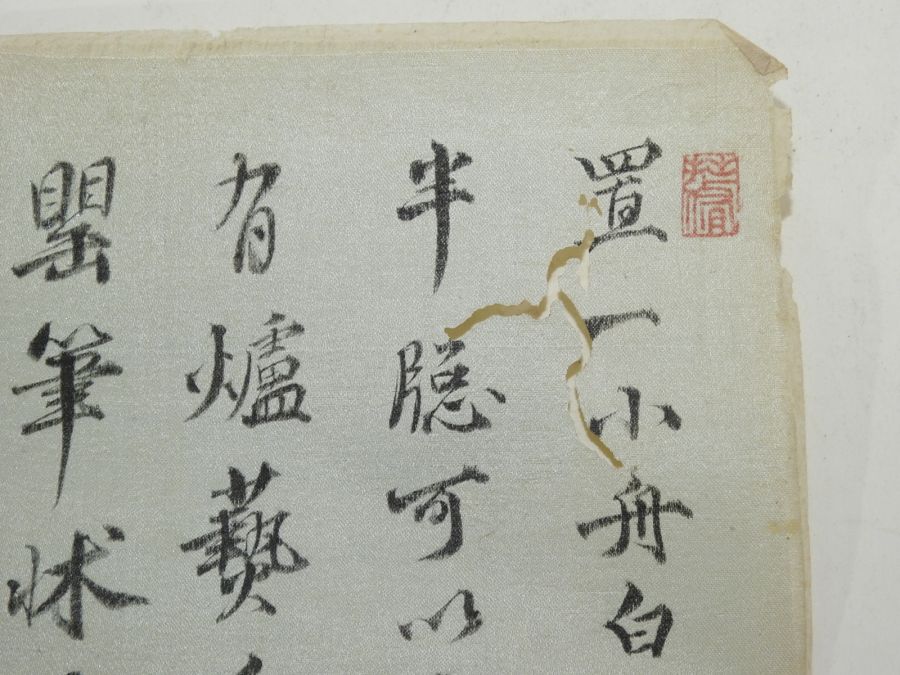 置一小舟白
半隱可以
有爐爇
罌筆牀